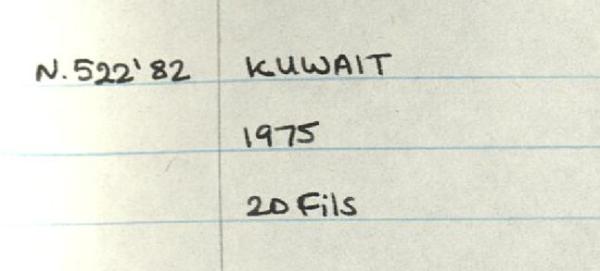 N.522'82 KUWAIT
1975
20 Fils